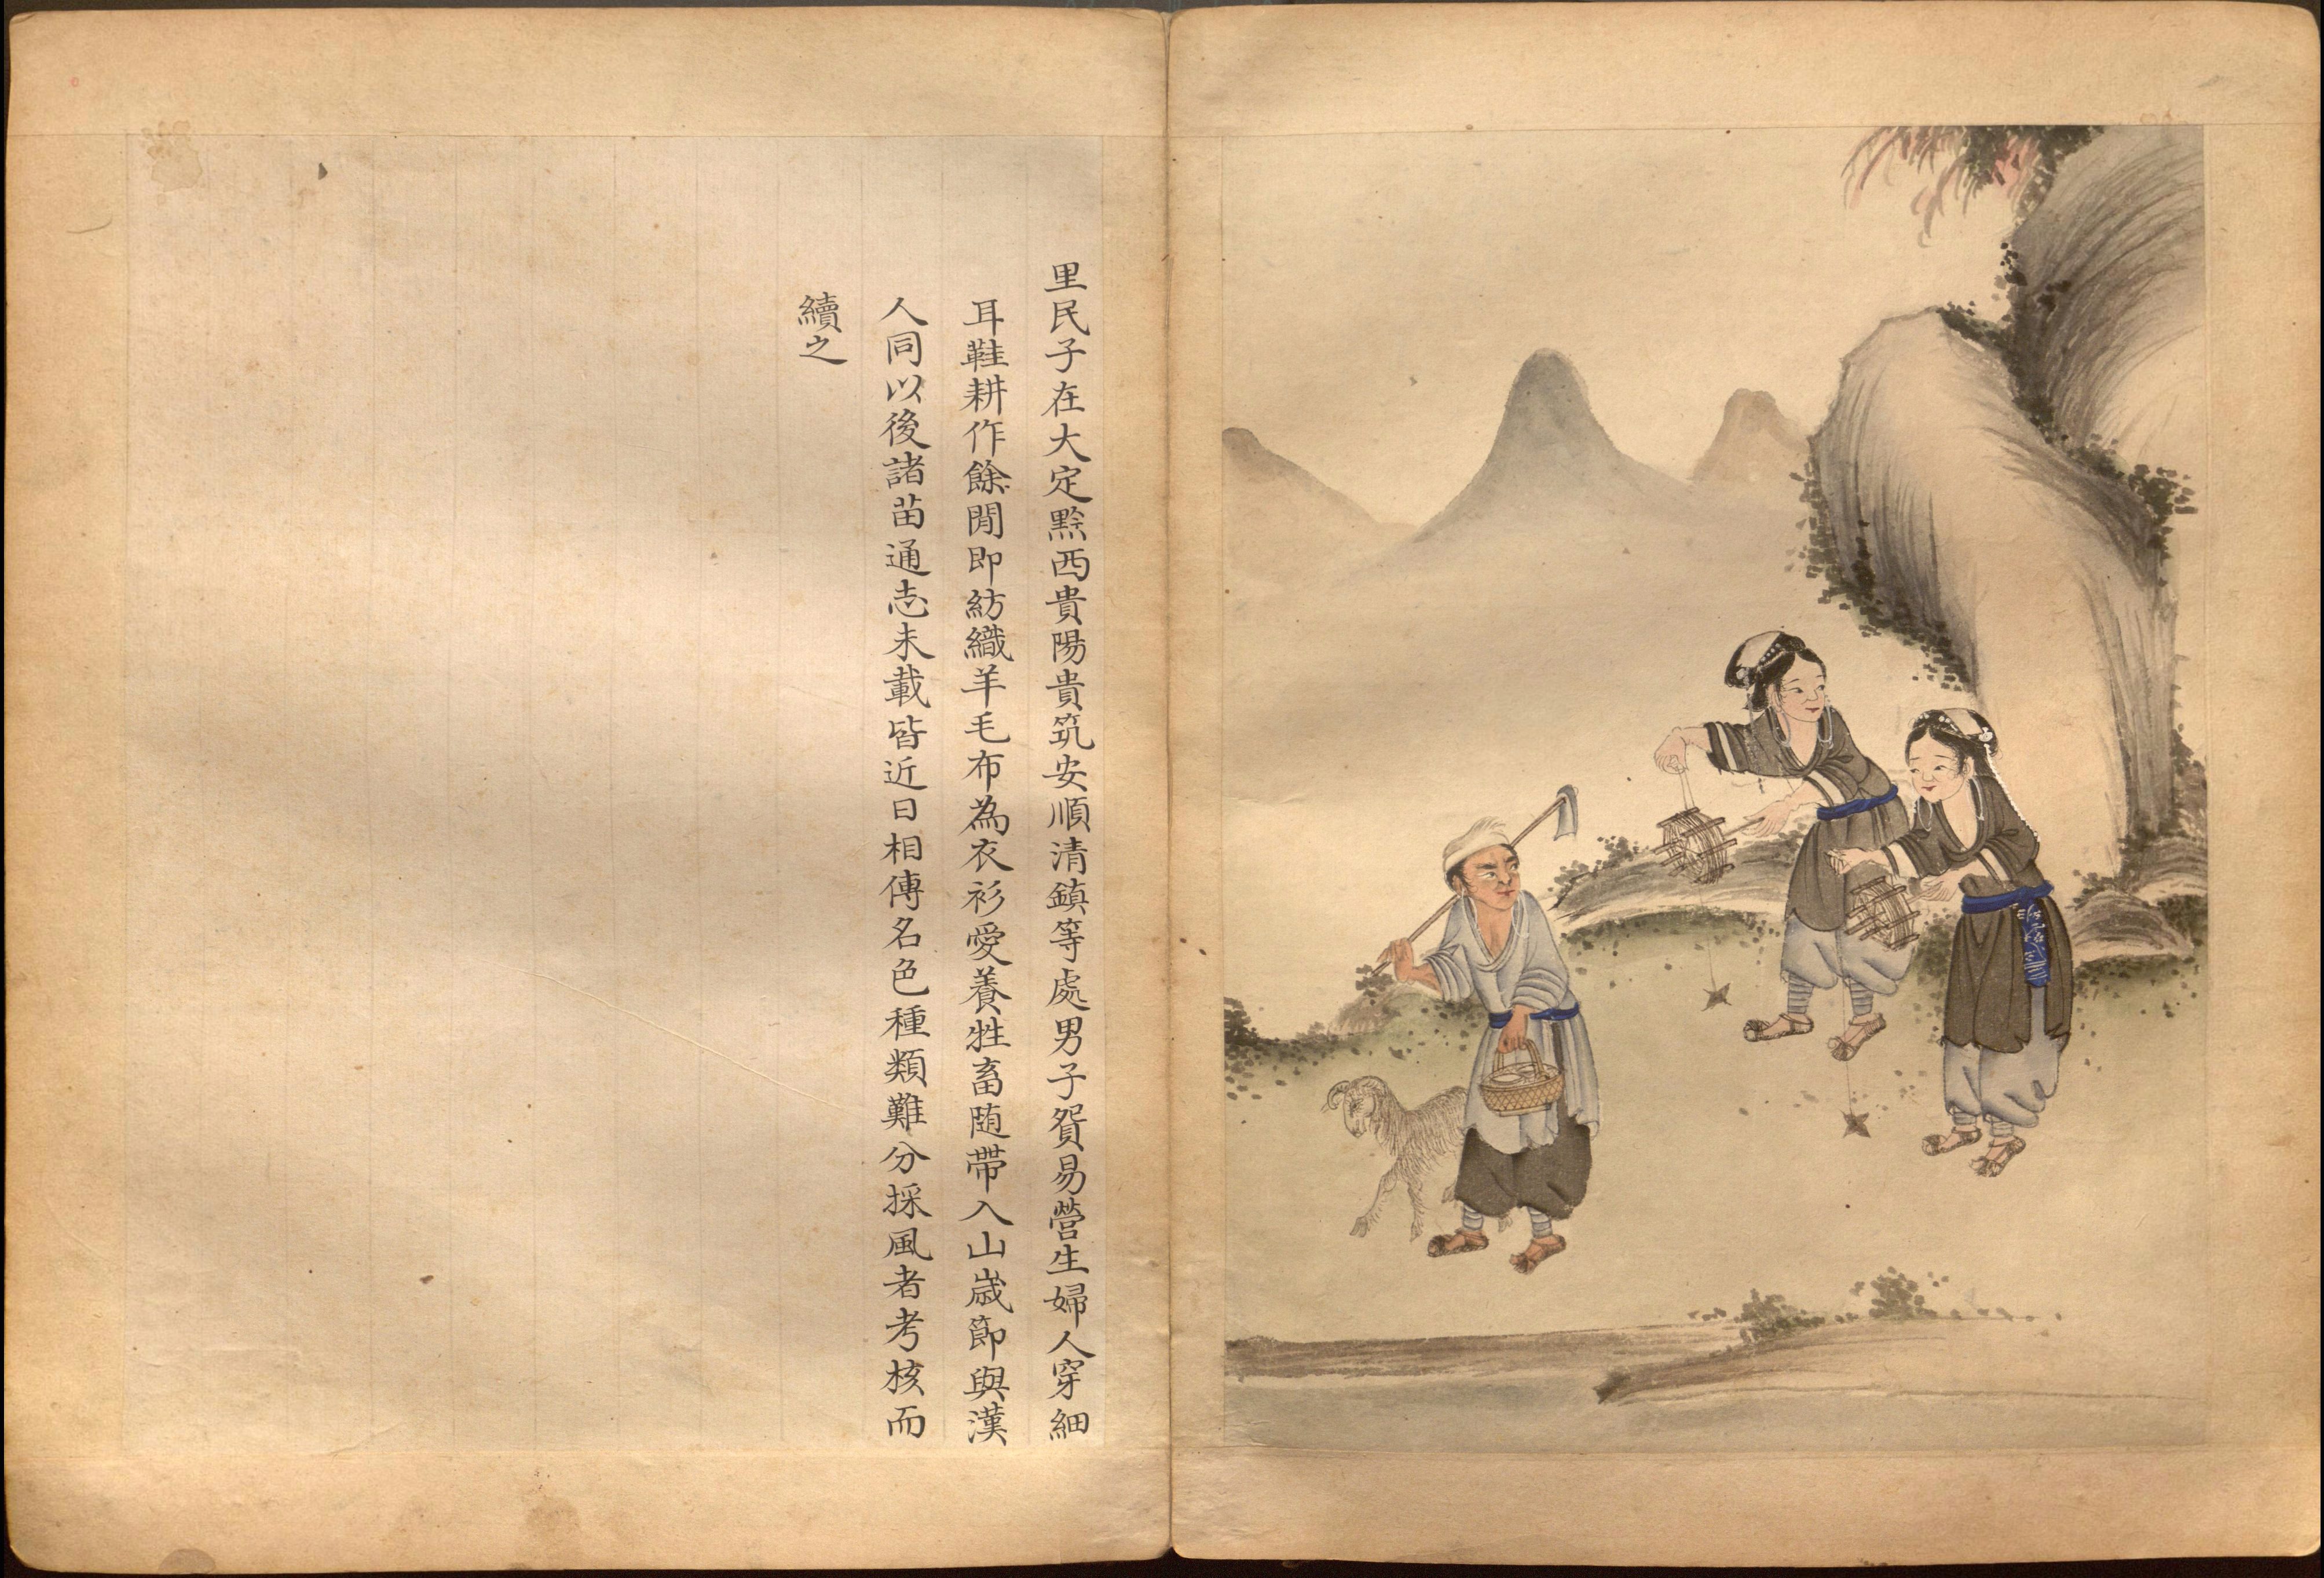 里民子在大定黔西貴陽貴筑安順清鎮等處男子貿易營生婦人穿細
耳鞋耕作餘閒即紡織羊毛布為衣衫愛養牲畜随帶入山歲節與漢
人同以後諸苗通志未載皆近日相傳名色種類難分採風者考核而
續之